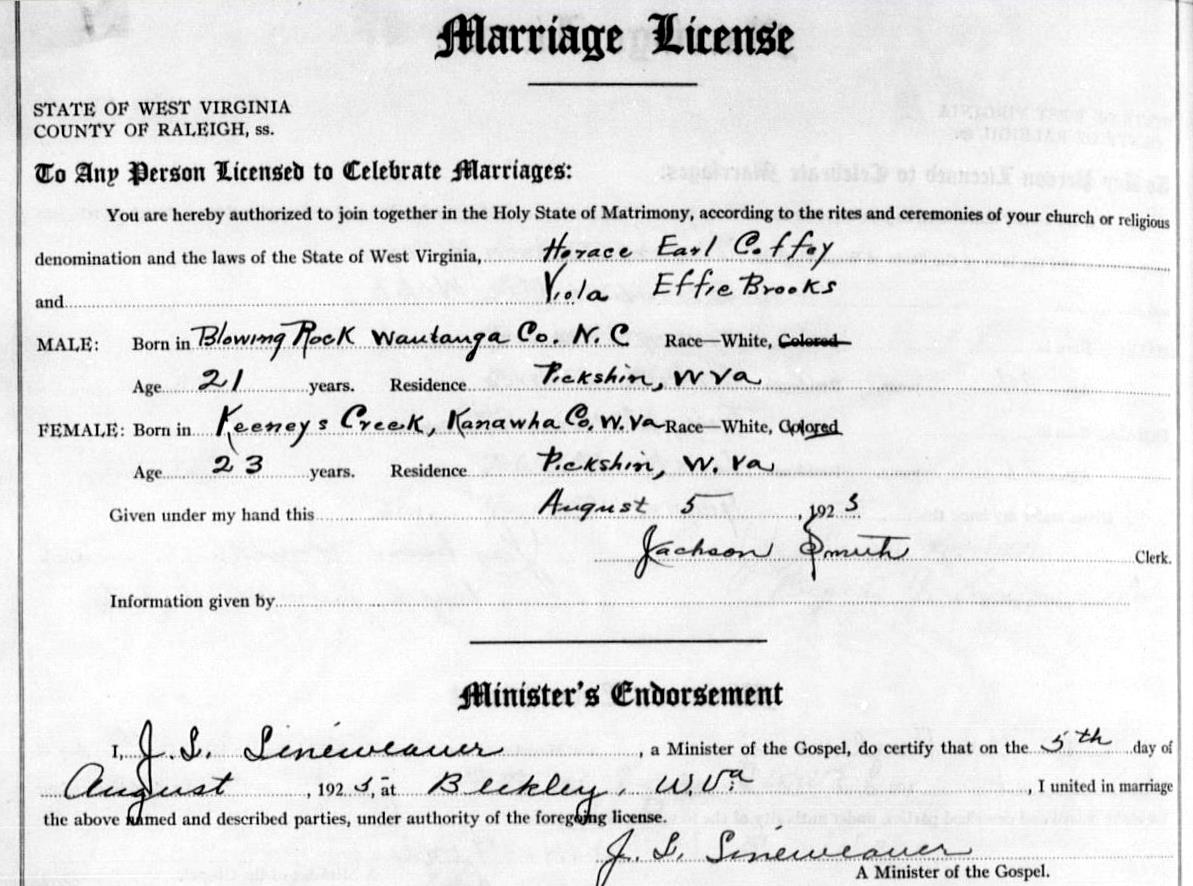 Marriage License
STATE OF WEST VIRGINIA
COUNTY OF RALEIGH, ss.
To Any Person Licensed to Celebrate Marriages:
You are hereby authorized to join together in the Holy State of Matrimony, according to the rites and ceremonies of your church or religious
denomination and the laws of the State of West Virginia, Horace Earl Coffey
and Viola Effie Brooks
MALE: Born in Blowing Rock Wautanga Co. N. C Race—White, Colored
Age 21 years. Residence Pickshin, W Va
FEMALE: Born in Keeneys Creek, Kanawha Co, W. Va Race—White, Colored
Age 23 years. Residence Pickshin, W. Va
Given under my hand this August 5, 1925
Jackson Smith Clerk.
Information given by
Minister's Endorsement
I, J. L. Lineweaver, a Minister of the Gospel, do certify that on the 5th day of
August, 1925, at Beckley, W. Va., I united in marriage
the above named and described parties, under authority of the foregoing license.
J. L. Lineweaver
A Minister of the Gospel.